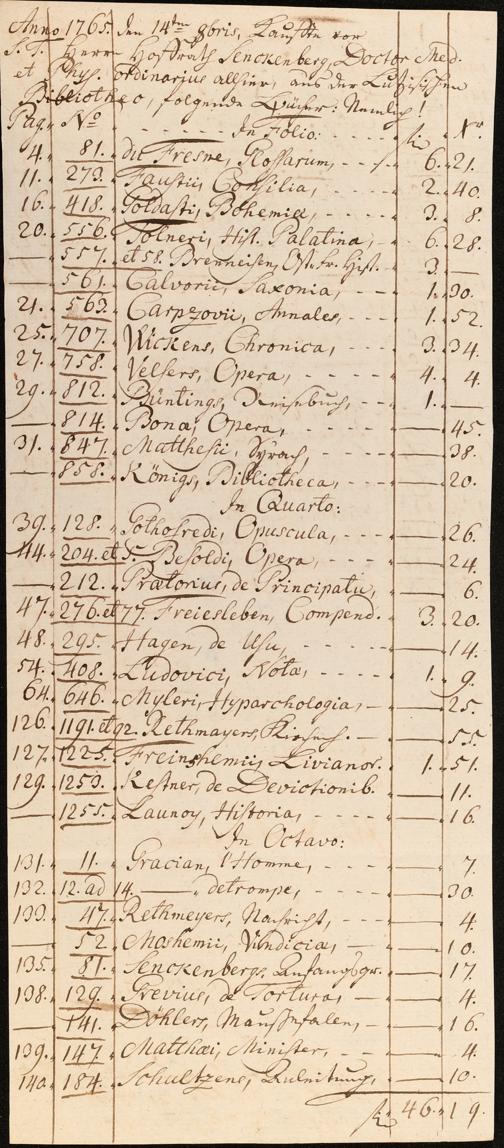 Anno 1765. den 14ten 9bris, Kauffte vor
S. T. Herrn Hoffrath Senckenberg, Doctor Med.
et Phys. ordinarius allhier, aus der Lutzischen
Bibliothec, folgende Bücher: Nemlich!
Pag. No In Folio: fl. Xr
4. 81. du Fresne, Glossarum, 6. 21.
11. 273. Faustii, Consilia, 2. 40.
16. 418. Goldasti, Bohemiæ, 3. 8.
20. 556. Tolneri, Hist. Palatina, 6. 28.
— 557. et 58. Brenneisen, Ost. fr. Hist. 3. —
— 561. Calvorii, Saxonia, 1. 30.
21. 563. Carpzovii, Annales, 1. 52.
25. 707. Wickens, Chronica, 3. 34.
27. 758. Velsers, Opera, 4. 4.
29. 812. Büntings, Reisebuch, 1. —
— 814. Bona, Opera, — 45.
31. 847. Matthesii, Syrach, — 38.
— 858. Königs, Bibliotheca, — 20.
In Quarto:
39. 128. Gothofredi, Opuscula, — 26.
44. 204. et 5. Besoldi, Opera, — 24.
— 212. Prætorius, de Principatu, — 6.
47. 276. et 77. Freiesleben, Compend. 3. 20.
48. 295. Hagen, de Usu, — 14.
54. 408. Ludovici, Nota, 1. 9.
64. 646. Myleri, Hyparchologia, — 25.
126. 1191. et 92. Rethmayers, — 55.
127. 1225. Freinshemii, Livianor. 1. 51.
129. 1250. Kestner, de Devictionib. — 11.
— 1255. Launoy, Historia, — 16.
In Octavo:
131. 11. Gracian, l'Homme, — 7.
132. 12. ad 14. — detrompe, — 30.
133. 47. Rethmeyers, Nachricht, — 4.
— 52. Moshemii, Vindiciæ, — 10.
135. 81. Senckenbergs, Anfangsgr. — 17.
138. 129. Grevius, de Tortura, — 4.
— 141. Döhlers, Maußfallen, — 16.
139. 147. Matthæi, Minister, — 4.
140. 184. Schultzens, Anleitung, — 10.
fl. 46. 19.